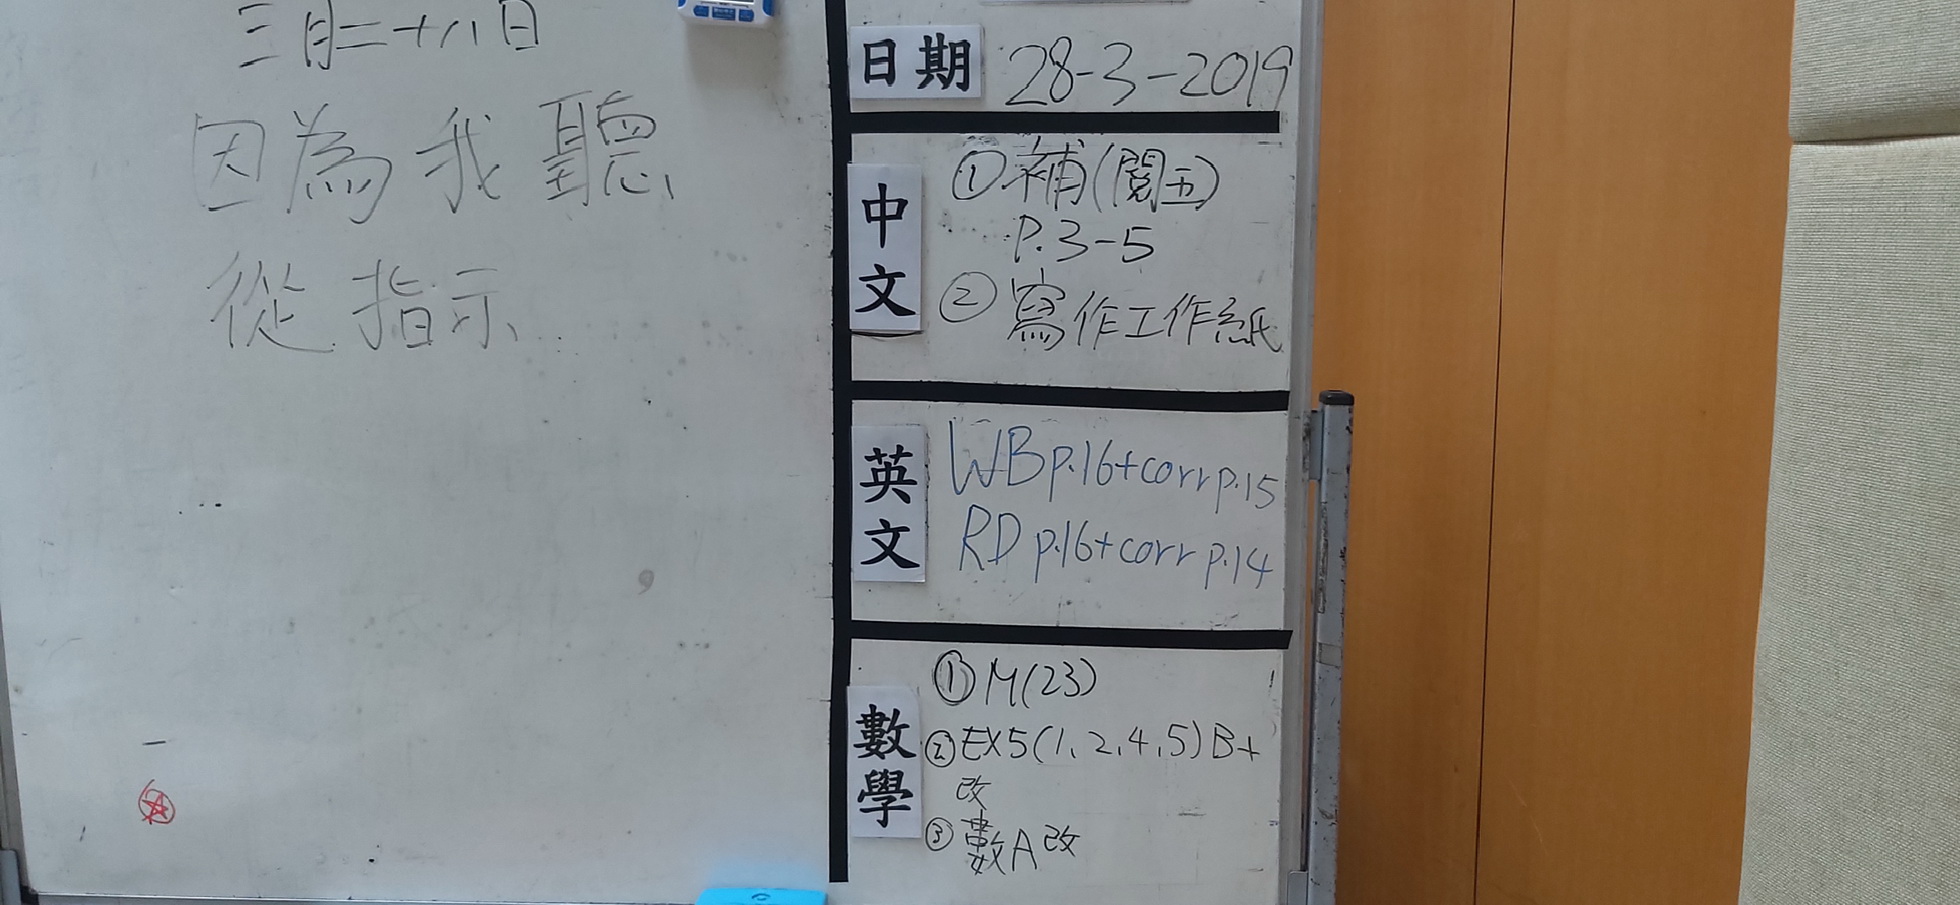 三月二十八日
因為我聽
從指示
日期 28-3-2019
中文
①補(閱五)
P.3-5
②寫作工作紙
英文
WB p.16+corr p.15
RD p.16+corr p.14
數學
①M(23)
②EX5(1、2、4、5)B+
改
③數A改